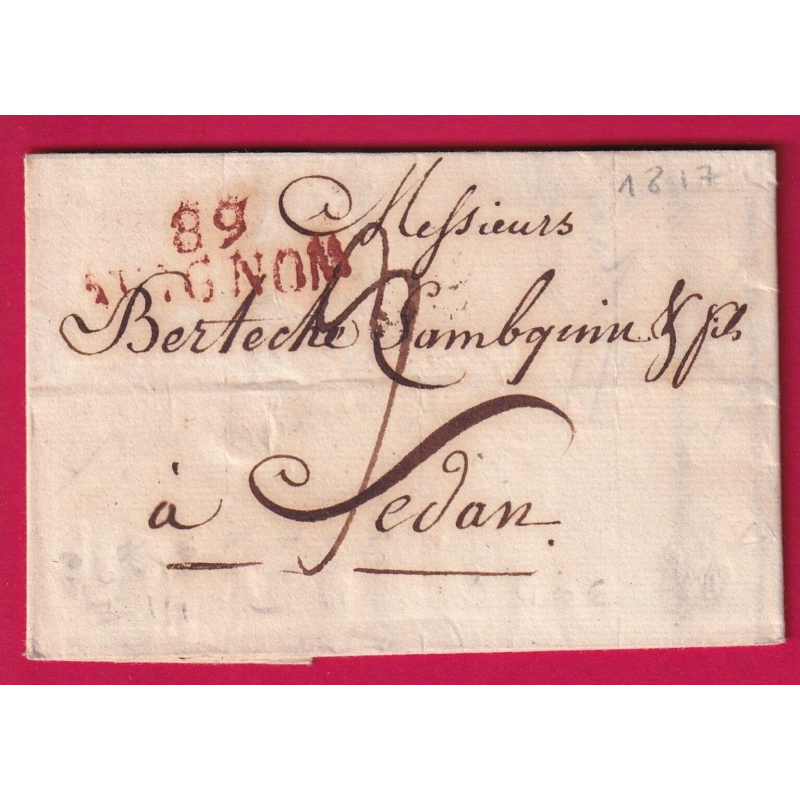 1817
89
AVIGNON
Messieurs
Berteche Lambquin & fils
à Sedan.